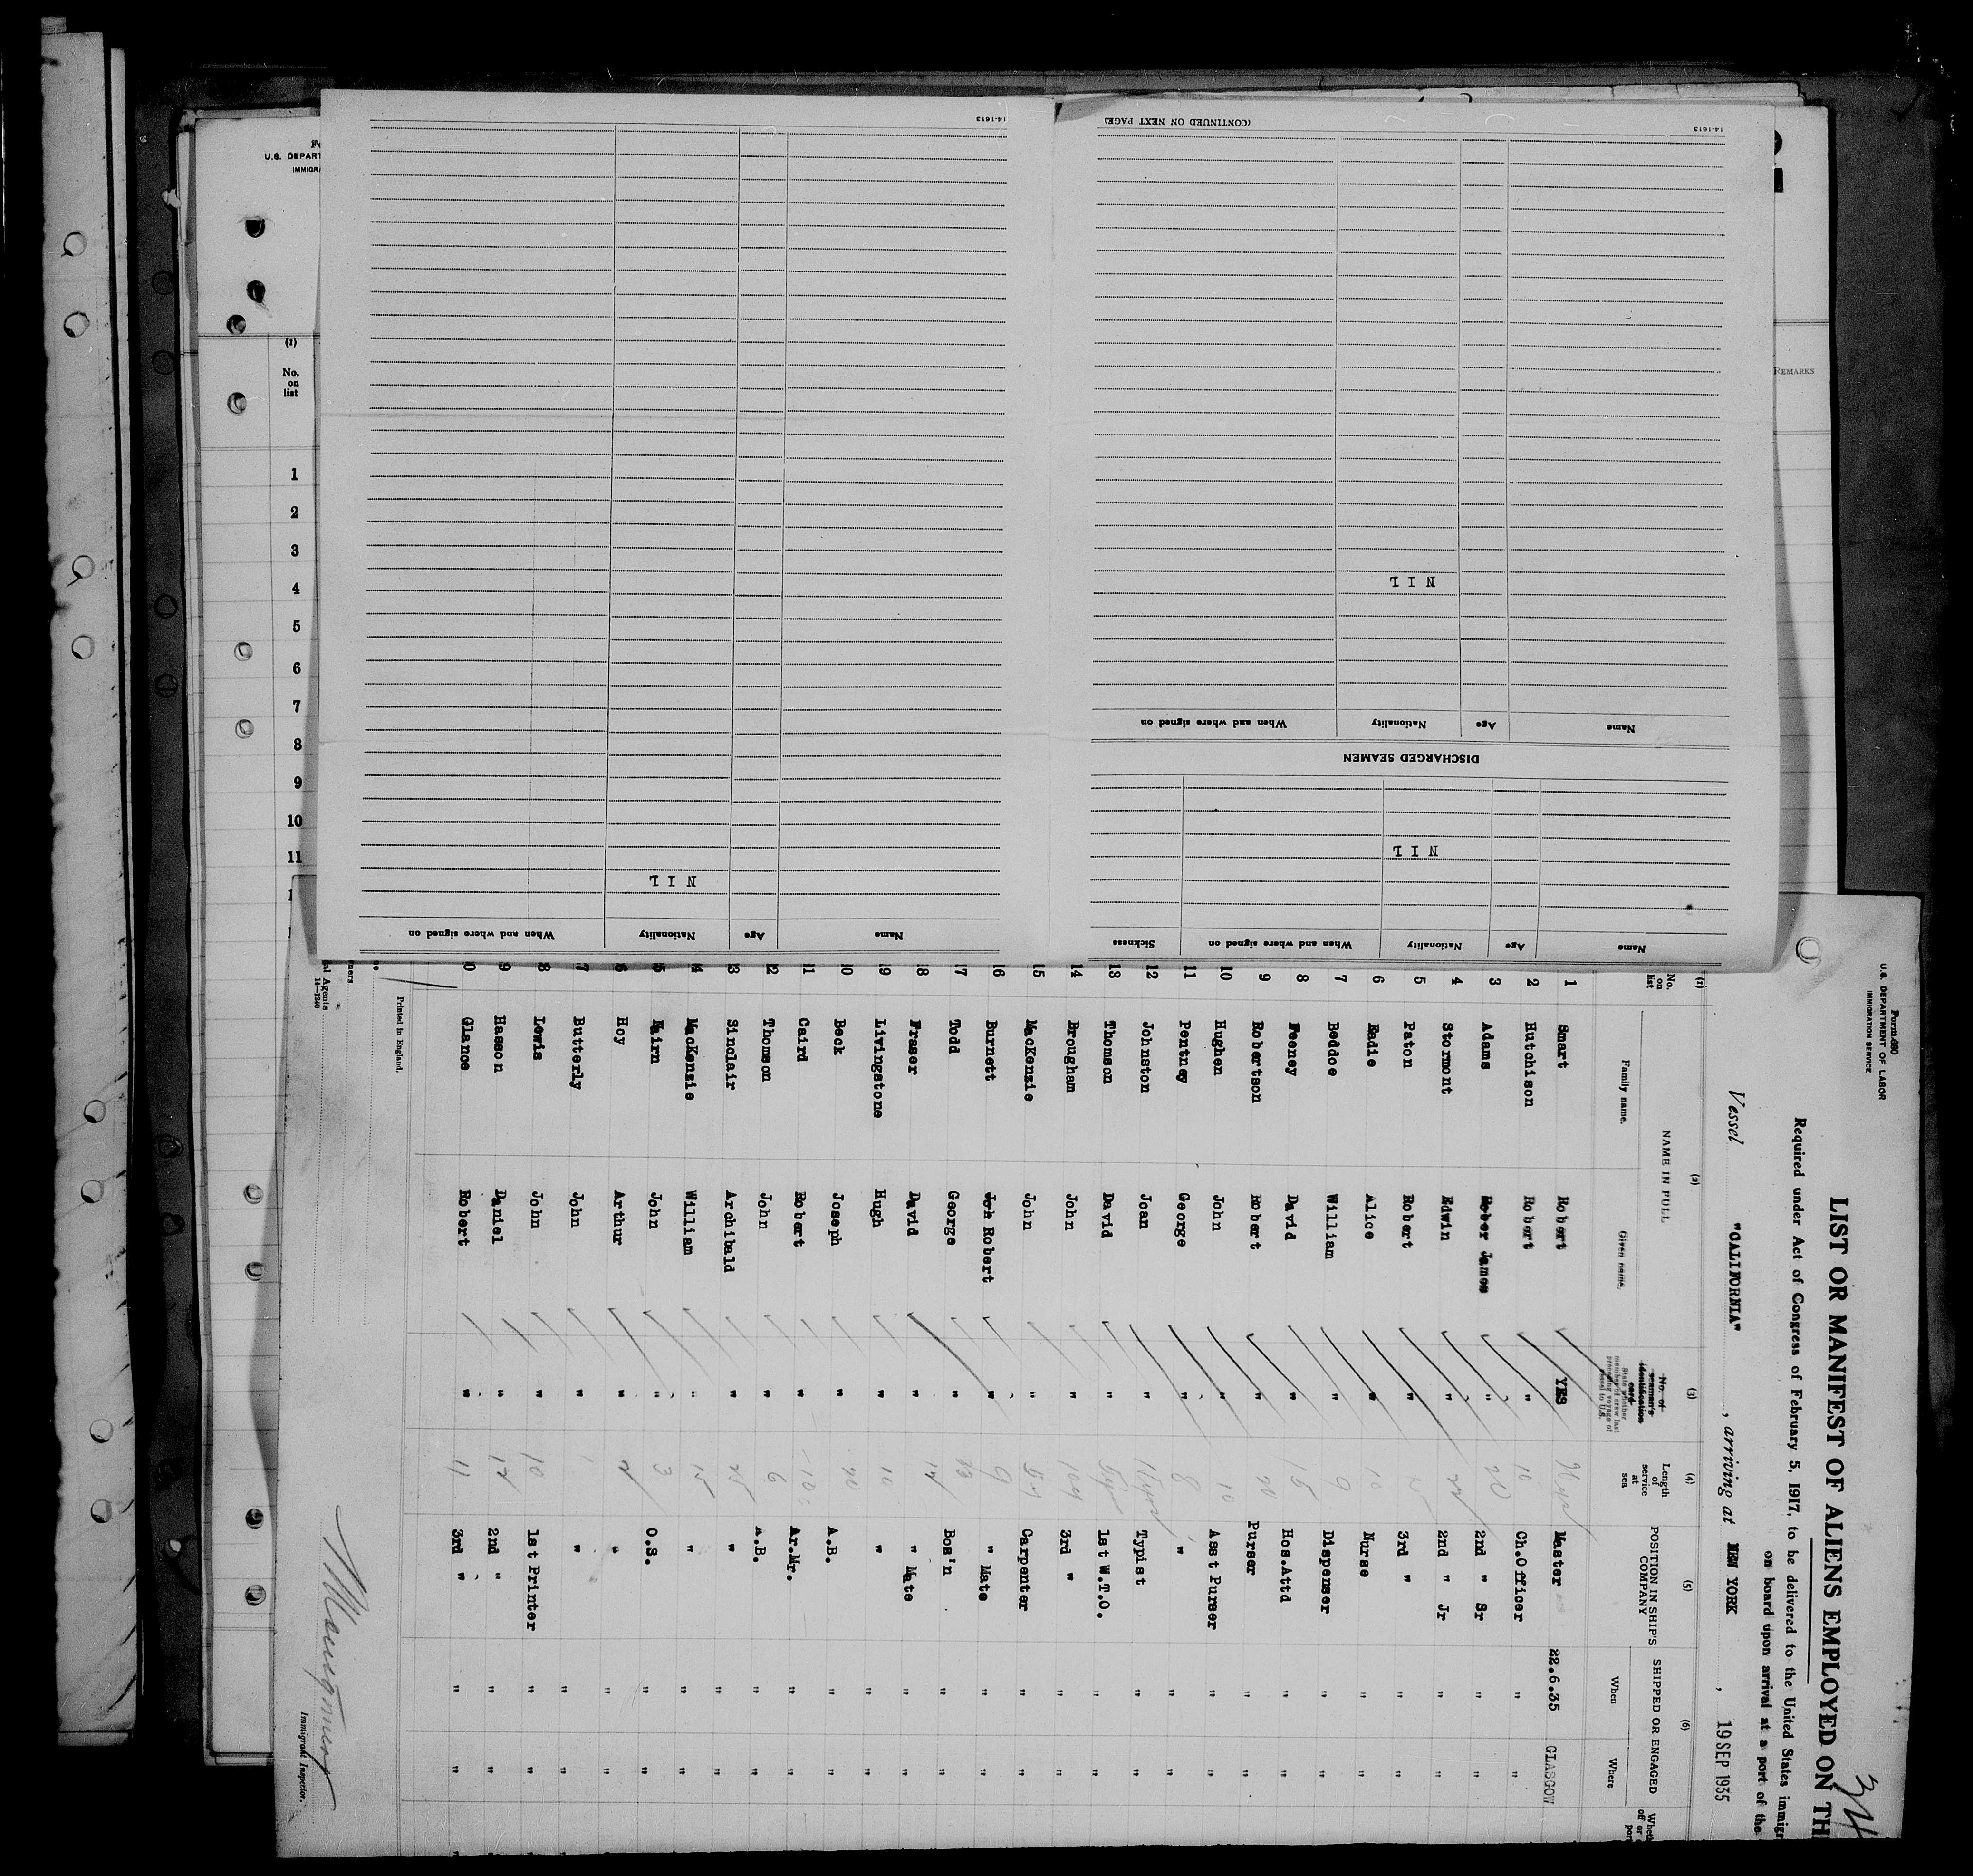 U.S. DEPART
IMMIGRA
(1)
No.
on
list
1
2
3
4
5
6
7
8
9
10
11
REMARKS
14-1613
NIL
Name
Age
Nationality
When and where signed on
(CONTINUED ON NEXT PAGE)
14-1613
NIL
Name
Age
Nationality
When and where signed on
DISCHARGED SEAMEN
NIL
Name
Age
Nationality
When and where signed on
Sickness
Form 680
U.S. DEPARTMENT OF LABOR
IMMIGRATION SERVICE
34
LIST OR MANIFEST OF ALIENS EMPLOYED ON TH
Required under Act of Congress of February 5, 1917, to be delivered to the United States immigr
on board upon arrival at a port of the
Vessel "CALIFORNIA", arriving at NEW YORK, 19 SEP 1935
(1) (2) (3) (4) (5) (6)
No. on list
NAME IN FULL
Family name.
Given name.
No. of seaman's identification card
State whether member of crew last preceding voyage of vessel to U.S.
Length of service at sea
POSITION IN SHIP'S COMPANY
SHIPPED OR ENGAGED
When
Where
1 Smart Robert YES Master 22.6.35 GLASGOW
2 Hutchison Robert " 10 Ch.Officer " "
3 Adams James " 20 2nd " Sr " "
4 Stormont Edwin " 2nd " Jr " "
5 Paton Robert " 3rd " " "
6 Eadie Alice " 10 Nurse " "
7 Beddoe William " 9 Dispenser " "
8 Feeney David " 15 Hos.Attd " "
9 Robertson Robert " 20 Purser " "
10 Hughen John " 10 Asst Purser " "
11 Pentney George " 8 " " "
12 Johnston Joan " Typist " "
13 Thomson David " 1st W.T.O. " "
14 Brougham John " 3rd " " "
15 MacKenzie John " Carpenter " "
16 Burnett Robert " 9 " Mate " "
17 Todd George " Bos'n " "
18 Fraser David " 12 " Mate " "
19 Livingstone Hugh " 10 " " "
20 Beck Joseph " 20 A.B. " "
21 Caird Robert " 10 Ar.Mr. " "
22 Thomson John " 6 A.B. " "
23 Sinclair Archibald " 25 " " "
24 MacKenzie William " 15 " " "
25 Nairn John " 3 O.S. " "
26 Hoy Arthur " 2 " " "
27 Butterly John " 1 " " "
28 Lewis John " 10 1st Printer " "
29 Hasson Daniel " 12 2nd " " "
30 Glance Robert " 11 3rd " " "
Printed in England.
al Agents
14-1240
Immigrant Inspector.